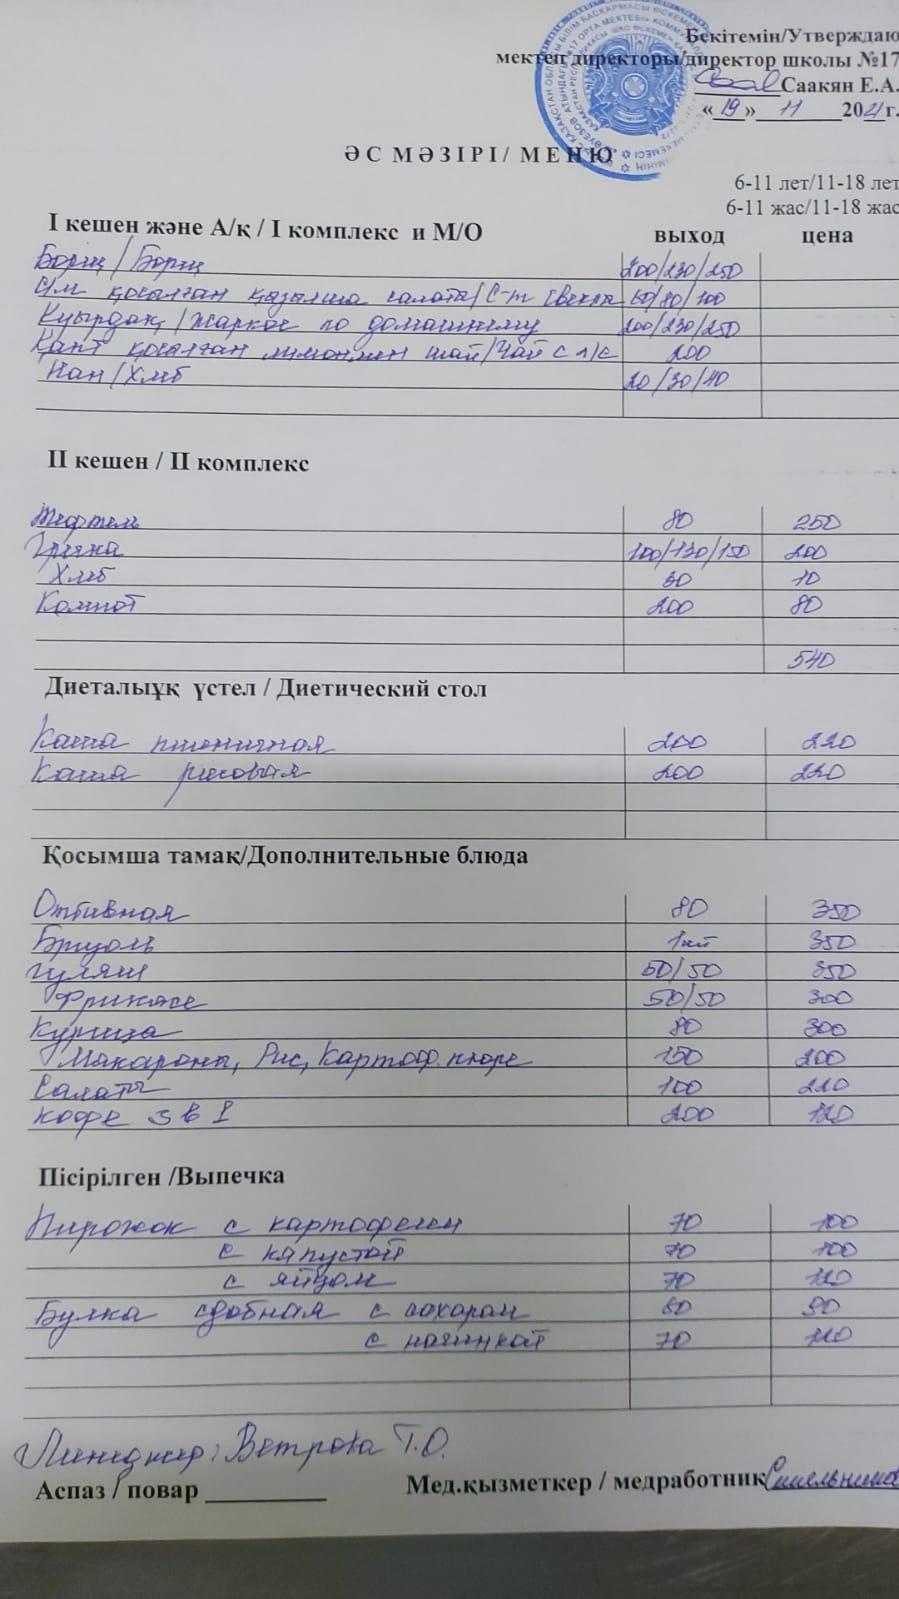 Бекітемін/Утверждаю
мектеп директоры/директор школы №17
Саакян Е.А.
«19» 11 2021г.
ӘС МӘЗІРІ/ МЕНЮ
6-11 лет/11-18 лет
6-11 жас/11-18 жас
І кешен және А/қ / І комплекс и М/О выход цена
Борщ / Борщ 200/230/250
қосылған қызылша салаты/ С-т свекла 60/80/100
Қуырдақ /Жаркое по домашнему 200/230/250
Қант қосылған лимонмен шай/Чай с л/с 200
Нан/Хлеб 20/30/40
ІІ кешен / ІІ комплекс
Тефтель 80 250
Гречка 100/130/150 200
Хлеб 30 10
Компот 200 80
540
Диеталыұқ үстел / Диетический стол
Каша пшеничная 200 220
Каша рисовая 200 220
Қосымша тамақ/Дополнительные блюда
Отбивная 80 350
Бризоль 350
гуляш 50/50 350
Фрикасе 50/50 300
Курица 80 300
Макароны, Рис, Картоф. пюре 150 200
Салаты 100 210
Кофе 3 в 1 200 120
Пісірілген /Выпечка
Пирожок с картофелем 70 100
с капустой 70 100
с яйцом 70 110
Булка сдобная с сахаром 60 90
с начинкой 70 110
Менеджер: Ветрова Т.О.
Аспаз / повар Мед.қызметкер / медработник